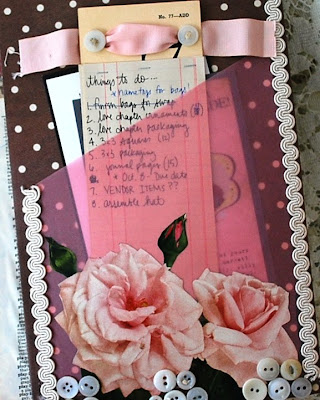 No. 77—ADD
7
things to do....
* nametags for bags!
1. finish bags for swap
2. love chapter ornaments
3. love chapter packaging
4. 3x3 squares (12)
5. 3x3 packaging
6. journal pages (15)
* Oct. 8 - Due date
7. VENDOR ITEMS ??
8. assemble hat